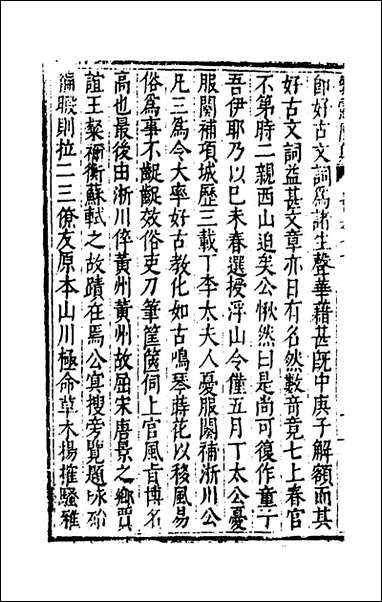 即好古文詞為諸生聲華藉甚旣中庚子解額而其
好古文詞益甚文章亦日有名然數竒竟七上春官
不第時二親西山迫矣公愀然曰是尚可復作童丁
吾伊耶乃以己未春選擾浮山令僅五月丁太公憂
服闋補項城歷三載丁李太夫人憂服闋補淅川公
凡三為令大率好古教化如古鳴琴蒔花以移風易
俗為事不齷齪效俗吏刀筆筐篋伺上官風㫖博名
高也最後由淅川倅黃州黃州故屈宋唐景之鄉賈
誼王粲禰衡蘇軾之故蹟在焉公寅搜旁覽題咏殆
徧暇則拉二三僚友原本山川極命草木揚搉騷雅